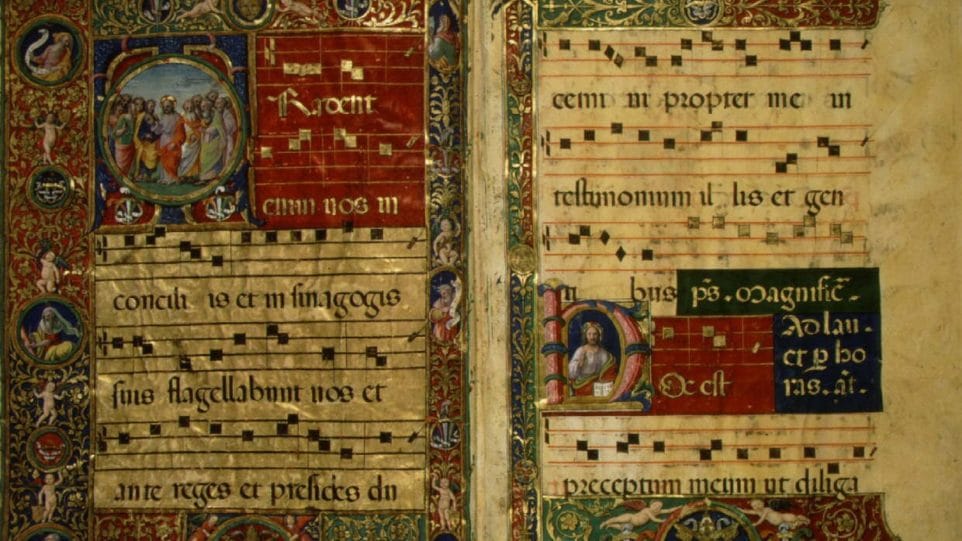 TRadent
enim uos in
concili is et in sinagogis
suis flagellabunt uos et
ante reges et presides du
cemi ni propter me in
testimonium il lis et gen
ti bus ps̄. Magnific̄.
Ad lau-
et ꝑ ho
ras. an̄.
HOc est
preceptum meum ut diliga